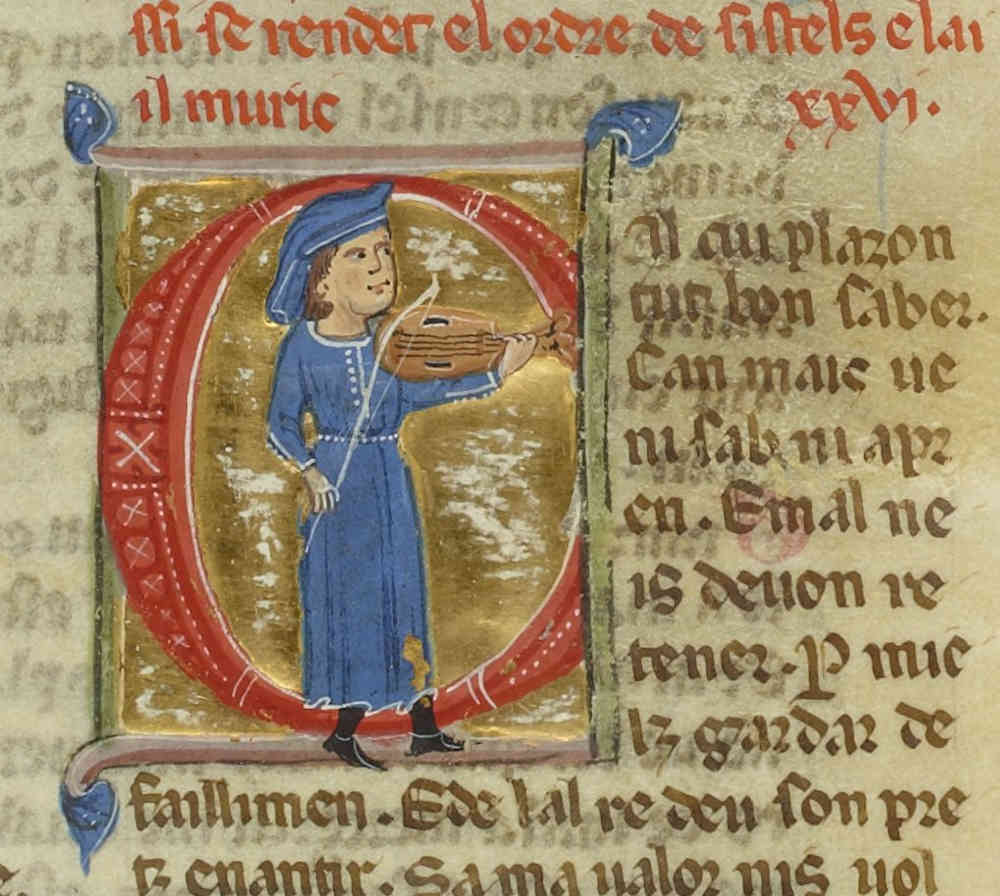 ssi se rendet el ordre de sistels e lai
il muric xxvi.
Al cui plazon
tuit bon saber.
Can mais ue
ni sab ni apr
en. E mal ne
is deuon re
tener. P mie
lz gardar de
faillimen. E de lal re deu son pre
tz enantir. Sa ma ualor nis uol